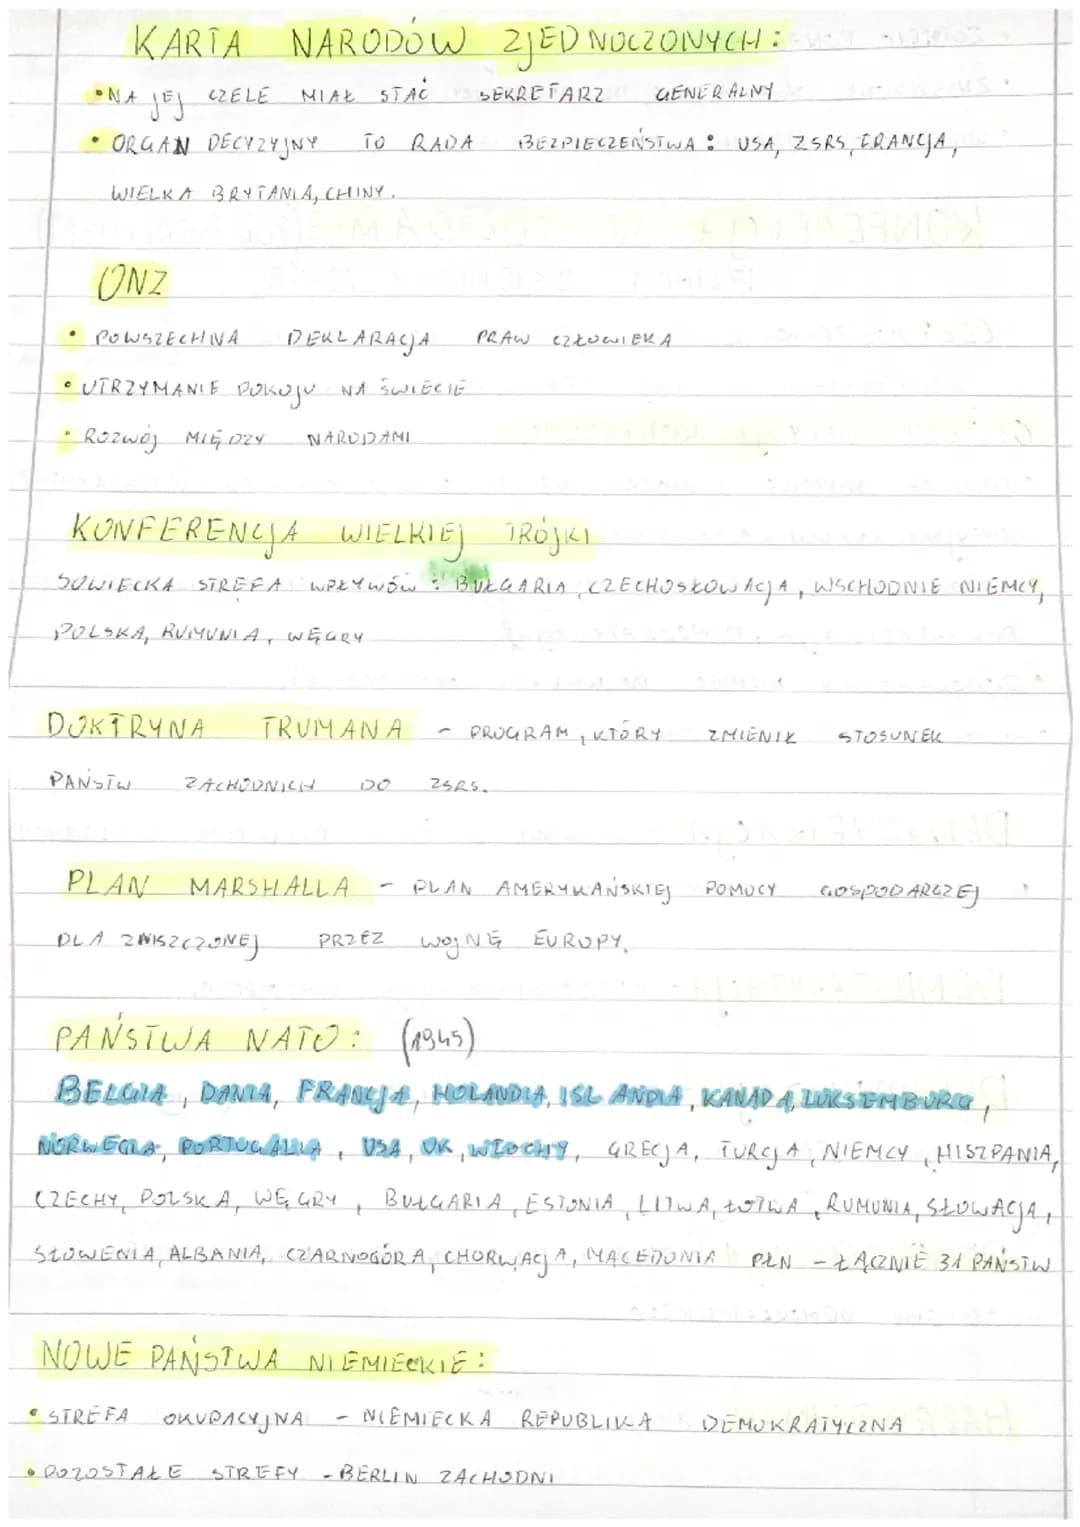 KARTA NARODÓW ZJEDNOCZONYCH:
• NA JEJ CZELE MIAŁ STAĆ SEKRETARZ GENERALNY
• ORGAN DECYZYJNY TO RADA BEZPIECZEŃSTWA: USA, ZSRS, FRANCJA,
WIELKA BRYTANIA, CHINY.
ONZ
• POWSZECHNA DEKLARACJA PRAW CZŁOWIEKA
• UTRZYMANIE POKOJU NA ŚWIECIE
• ROZWÓJ MIĘDZY NARODAMI
KONFERENCJA WIELKIEJ TRÓJKI
SOWIECKA STREFA WPŁYWÓW: BUŁGARIA, CZECHOSŁOWACJA, WSCHODNIE NIEMCY,
POLSKA, RUMUNIA, WĘGRY
DOKTRYNA TRUMANA - PROGRAM, KTÓRY ZMIENIŁ STOSUNEK
PAŃSTW ZACHODNICH DO ZSRS.
PLAN MARSHALLA - PLAN AMERYKAŃSKIEJ POMOCY GOSPODARCZEJ
DLA ZNISZCZONEJ PRZEZ WOJNĘ EUROPY.
PAŃSTWA NATO: (1945)
BELGIA, DANIA, FRANCJA, HOLANDIA, ISLANDIA, KANADA, LUKSEMBURG,
NORWEGIA, PORTUGALIA, USA, UK, WŁOCHY, GRECJA, TURCJA, NIEMCY, HISZPANIA,
CZECHY, POLSKA, WĘGRY, BUŁGARIA, ESTONIA, LITWA, ŁOTWA, RUMUNIA, SŁOWACJA,
SŁOWENIA, ALBANIA, CZARNOGÓRA, CHORWACJA, MACEDONIA PŁN - ŁĄCZNIE 31 PAŃSTW
NOWE PAŃSTWA NIEMIECKIE:
• STREFA OKUPACYJNA - NIEMIECKA REPUBLIKA DEMOKRATYCZNA
• POZOSTAŁE STREFY - BERLIN ZACHODNI